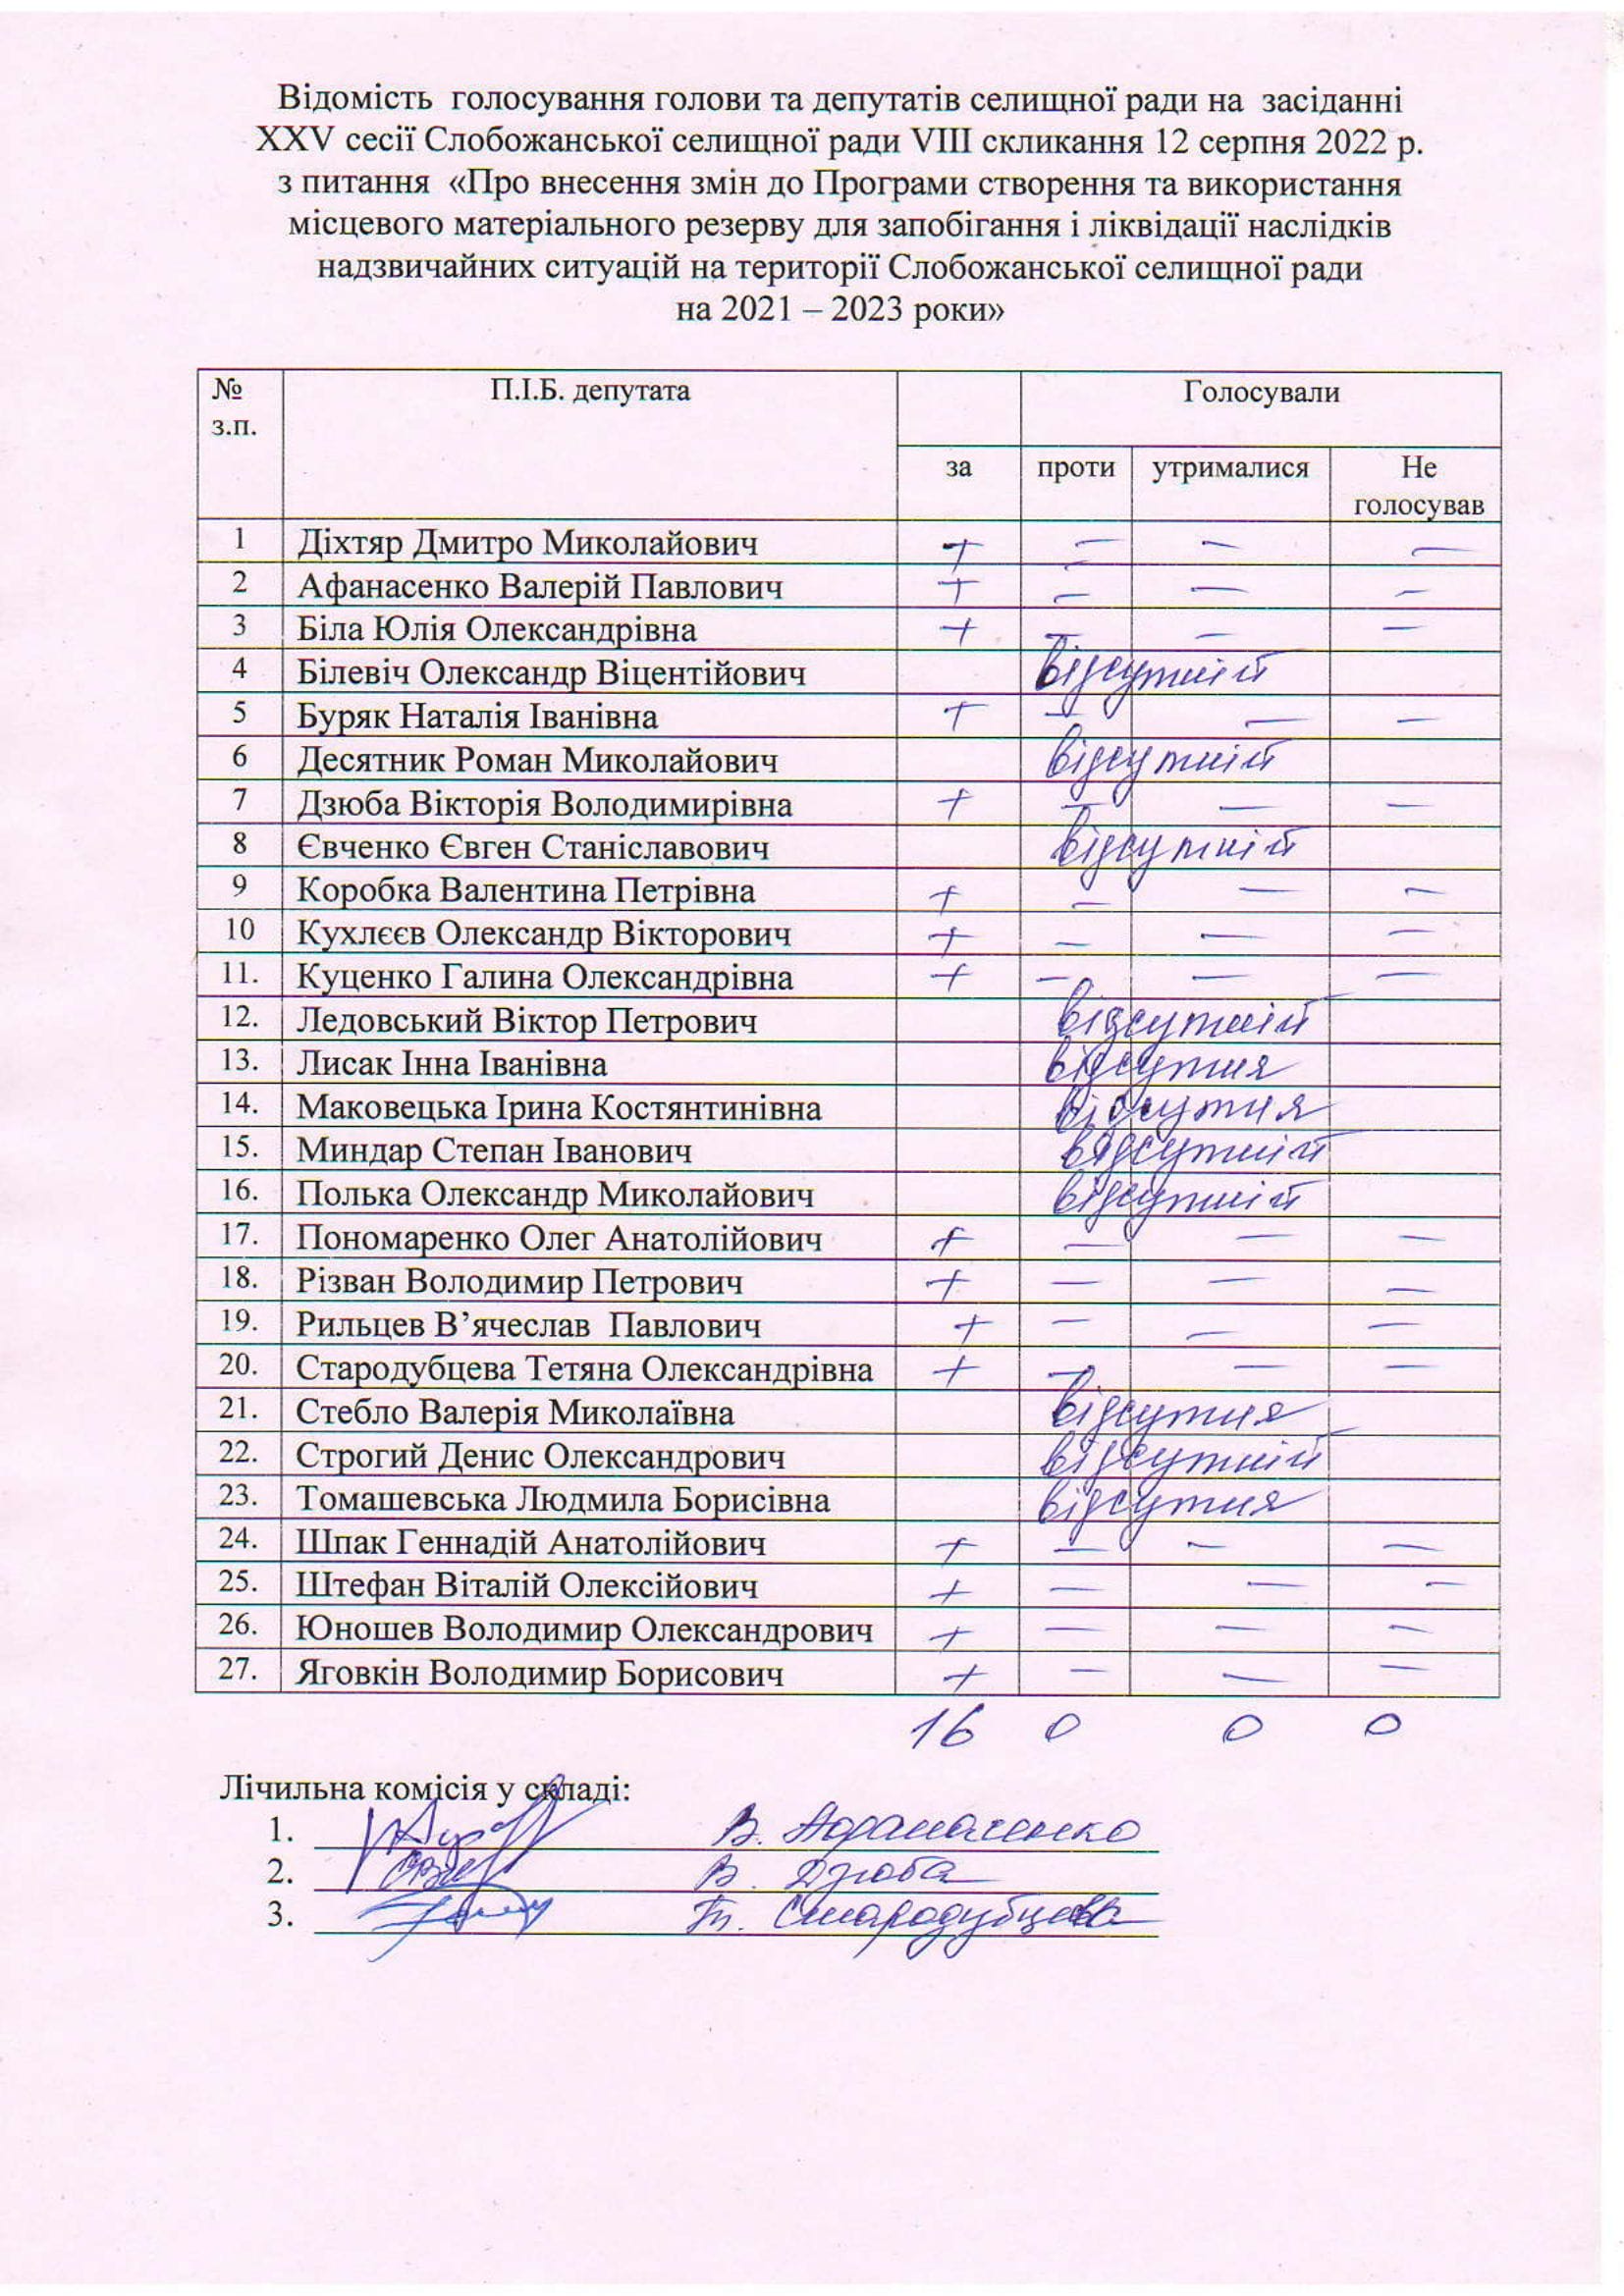 Відомість голосування голови та депутатів селищної ради на засіданні
XXV сесії Слобожанської селищної ради VIII скликання 12 серпня 2022 р.
з питання «Про внесення змін до Програми створення та використання
місцевого матеріального резерву для запобігання і ліквідації наслідків
надзвичайних ситуацій на території Слобожанської селищної ради
на 2021 – 2023 роки»
№ з.п. П.І.Б. депутата Голосували
за проти утрималися Не голосував
1 Діхтяр Дмитро Миколайович + – – –
2 Афанасенко Валерій Павлович + – – –
3 Біла Юлія Олександрівна + – – –
4 Білевіч Олександр Віцентійович відсутній
5 Буряк Наталія Іванівна + – – –
6 Десятник Роман Миколайович відсутній
7 Дзюба Вікторія Володимирівна + – – –
8 Євченко Євген Станіславович відсутній
9 Коробка Валентина Петрівна + – – –
10 Кухлєєв Олександр Вікторович + – – –
11. Куценко Галина Олександрівна + – – –
12. Ледовський Віктор Петрович відсутній
13. Лисак Інна Іванівна відсутня
14. Маковецька Ірина Костянтинівна відсутня
15. Миндар Степан Іванович відсутній
16. Полька Олександр Миколайович відсутній
17. Пономаренко Олег Анатолійович + – – –
18. Різван Володимир Петрович + – – –
19. Рильцев В’ячеслав Павлович + – – –
20. Стародубцева Тетяна Олександрівна + – – –
21. Стебло Валерія Миколаївна відсутня
22. Строгий Денис Олександрович відсутній
23. Томашевська Людмила Борисівна відсутня
24. Шпак Геннадій Анатолійович + – – –
25. Штефан Віталій Олексійович + – – –
26. Юношев Володимир Олександрович + – – –
27. Яговкін Володимир Борисович + – – –
16 0 0 0
Лічильна комісія у складі:
1. В. Афанасенко
2. В. Дзюба
3. Т. Стародубцева